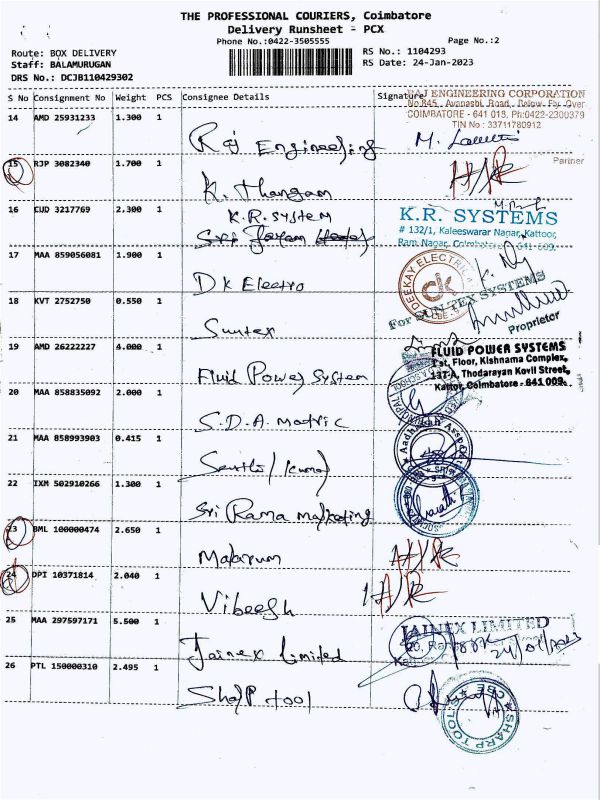 THE PROFESSIONAL COURIERS, Coimbatore
Delivery Runsheet - PCX
Phone No.:0422-3505555
Page No.:2
Route: BOX DELIVERY
Staff: BALAMURUGAN
DRS No.: DCJB110429302
RS No.: 1104293
RS Date: 24-Jan-2023
S No Consignment No Weight PCS Consignee Details Signature
RAJ ENGINEERING CORPORATION
No.845, Avanashi Road, Below Fly Over
COIMBATORE - 641 018, Ph:0422-2300379
TIN No : 33711780912
14 AMD 25931233 1.300 1 Raj Engineering
Partner
15 RJP 3082340 1.700 1 K. Thangam
16 CUD 3217769 2.300 1 K.R. System
K.R. SYSTEMS
# 132/1, Kaleeswarar Nagar, Kattoor,
Ram Nagar, Coimbatore - 641 009.
17 MAA 859056081 1.900 1 DK Electro
DEEKAY ELECTRICAL
dk
CBE-9
18 KVT 2752750 0.550 1 Suntex
For SUNTEX SYSTEMS
Proprietor
19 AMD 26222227 4.000 1 Fluid Power System
FLUID POWER SYSTEMS
1st, Floor, Kishnama Complex,
137-A, Thodarayan Kovil Street,
Kattor, Coimbatore - 641 009.
20 MAA 858835092 2.000 1 S.D.A. Matric
21 MAA 858993903 0.415 1
22 IXM 502910266 1.300 1 Sri Rama Marketing
23 BML 100000474 2.650 1
24 DPI 10371814 2.040 1 Vibeesh
25 MAA 297597171 5.500 1 Jainex Limited
JAINEX LIMITED
24/01/2023
26 PTL 150000310 2.495 1 Sharp tool
SHARP TOOLS
CBE